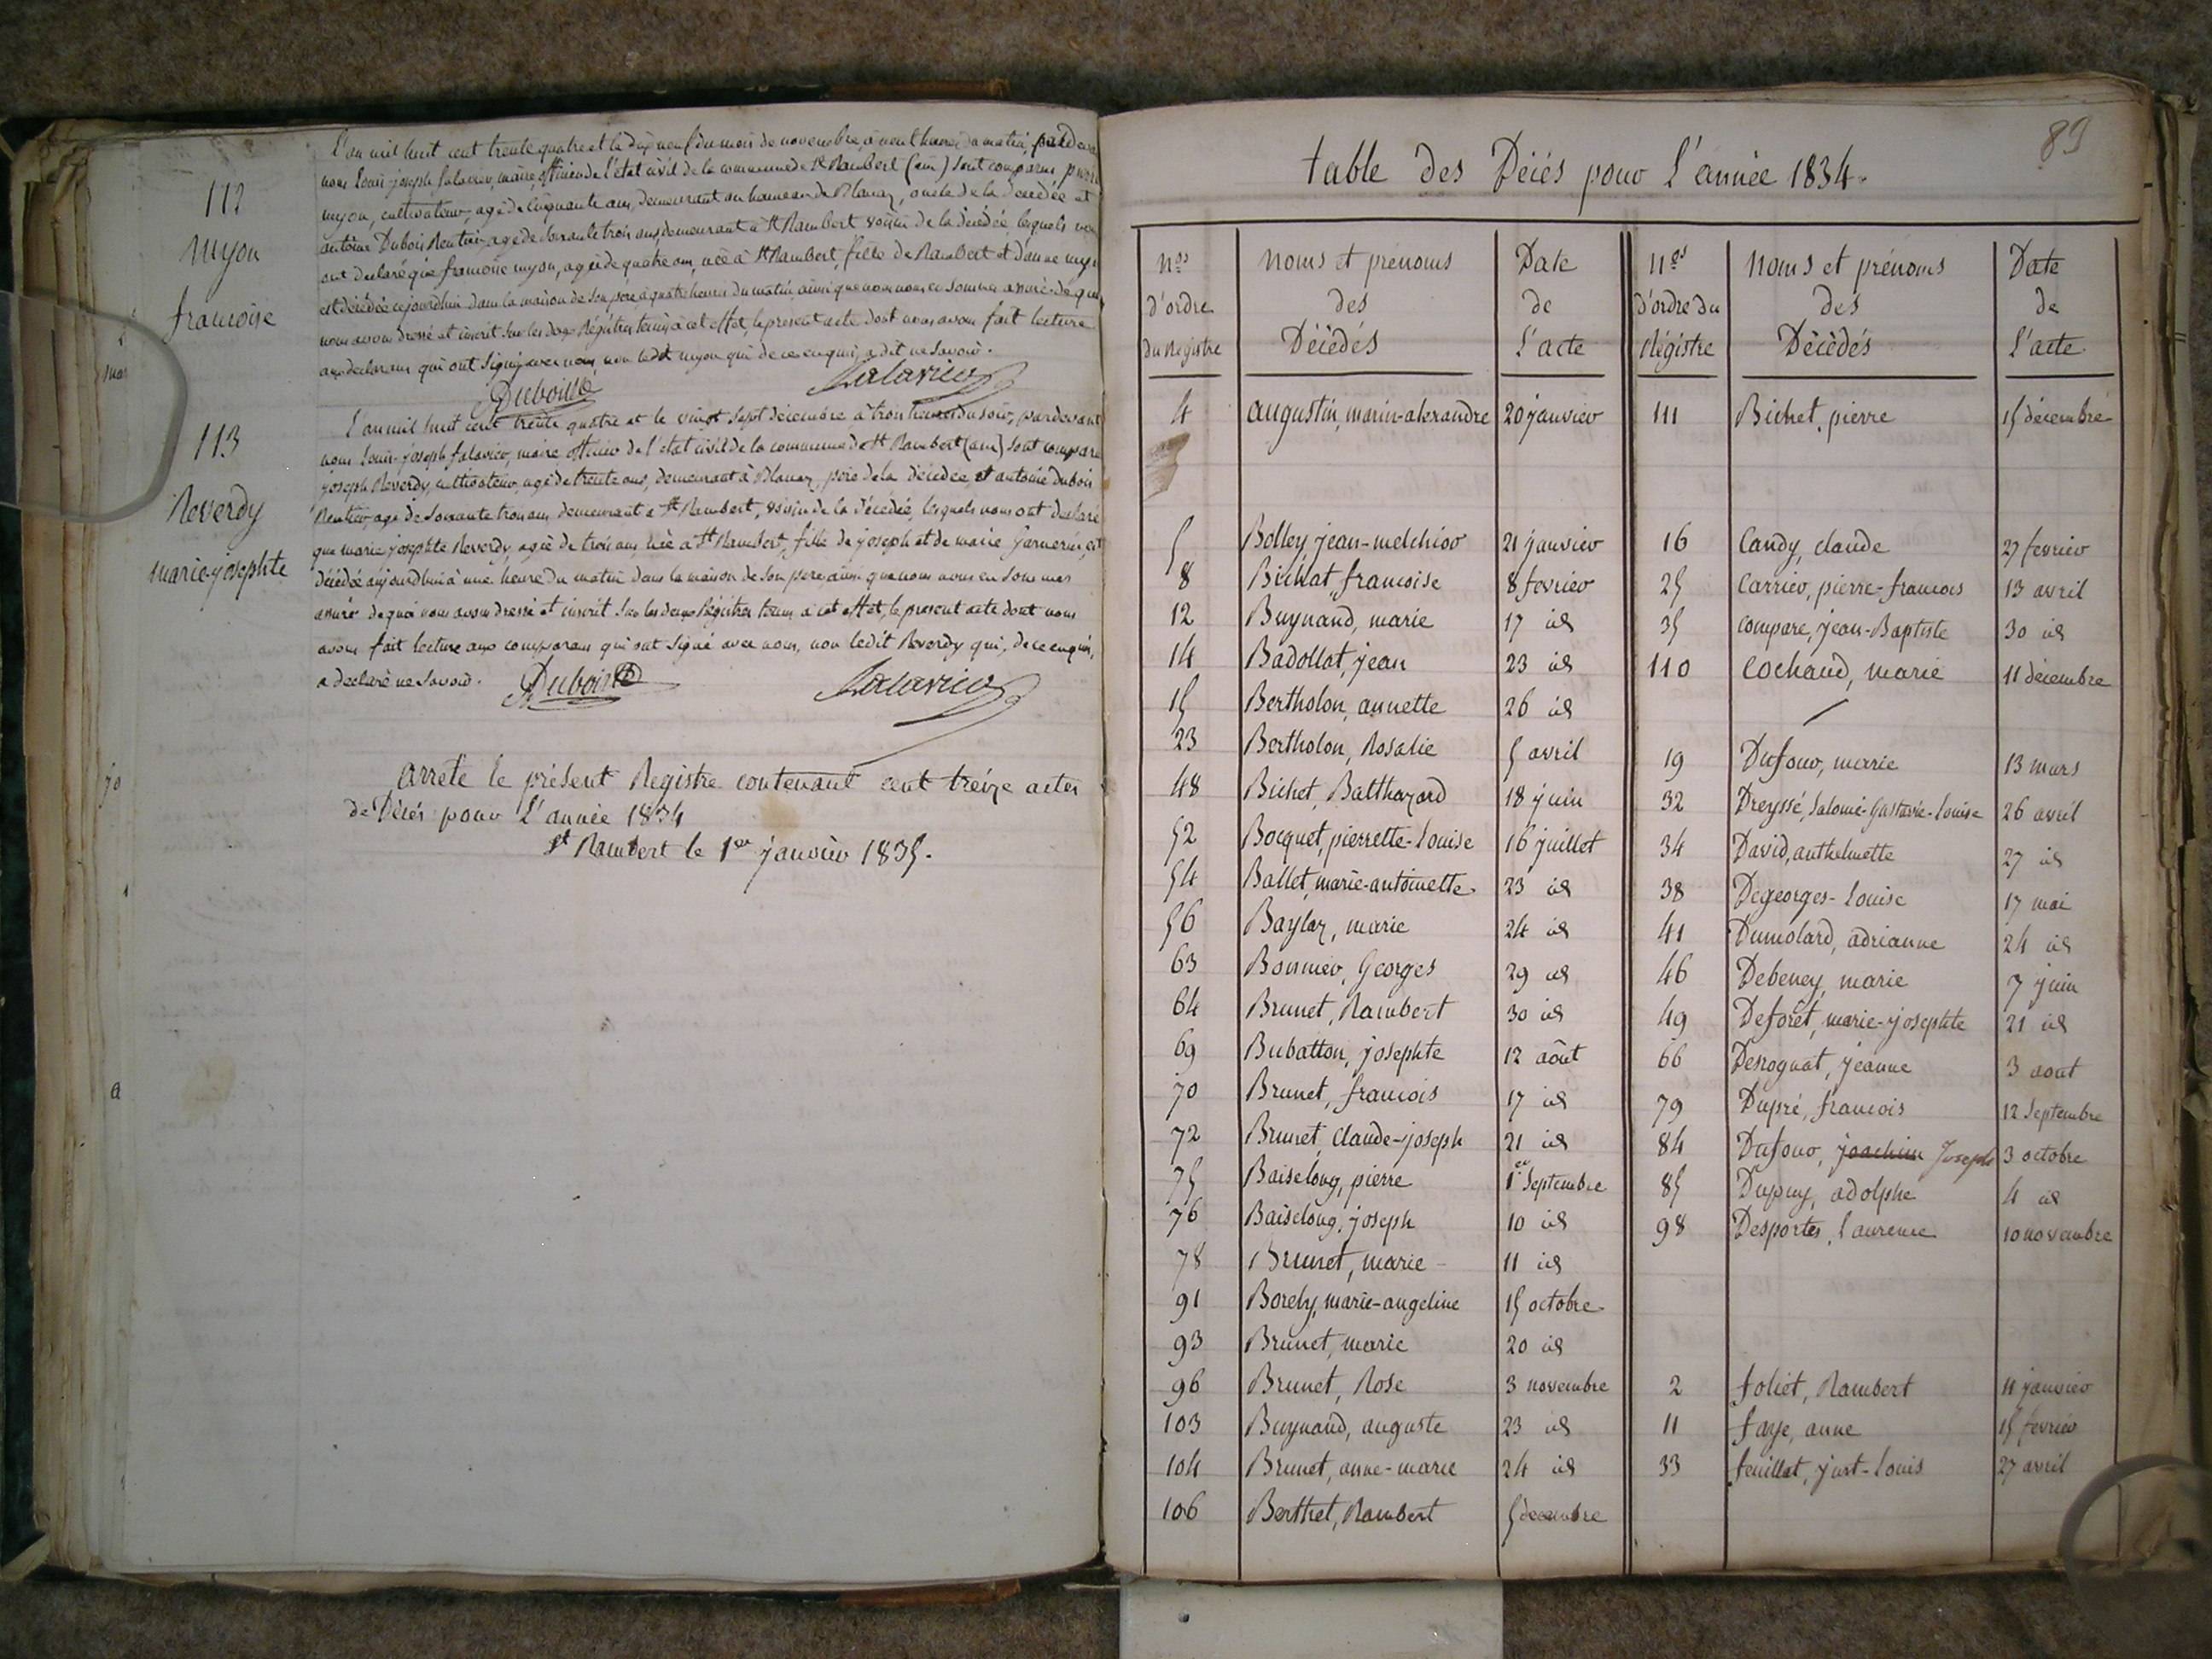 112
Nyon
francoise
L'an mil huit cent trente quatre et le dix neuf du mois de novembre, à neuf heures du matin, pardevant
nous Louis-joseph Salavier, maire, officier de l'état civil de la commune de St Rambert (ain) sont comparus
nyon, cultivateur, agé de cinquante ans, demeurant au hameau de Blanaz, oncle de la décédée et
antoine Dubois Rentier, agé de soixante trois ans, demeurant à St Rambert voisin de la décédée, lesquels nous
ont declaré que francoise nyon, agée de quatre ans, née à St Rambert, fille de Rambert et d'anne
est décédée cejourdhui dans la maison de son père, à quatre heures du matin, ainsi que nous nous en sommes assuré, de quoi
nous avons dressé et inscrit sur les deux Régistres tenus à cet effet, le présent acte dont nous avons fait lecture
aux declarans qui ont signé avec nous, non ledit nyon qui de ce enquis, a dit ne savoir.
Dubois Salavier
113
Reverdy
marie-josephte
L'an mil huit cent trente quatre et le vingt sept décembre à trois heures du soir, pardevant
nous Louis-joseph Salavier, maire officier de l'état civil de la commune de St Rambert (ain) sont comparu
joseph Reverdy, cultivateur, agé de trente ans, demeurant à Blanaz, père de la décédée, et antoine dubois
Rentier, agé de soixante trois ans demeurant à St Rambert, voisin de la décédée, lesquels nous ont declaré
que marie josephte Reverdy, agée de trois ans, née à St Rambert, fille de joseph et de marie est
décédée aujourdhui à une heure du matin dans la maison de son pere ainsi que nous nous en sommes
assuré de quoi nous avons dressé et inscrit sur les deux Régistres tenus à cet effet, le présent acte dont nous
avons fait lecture aux comparans qui ont signé avec nous, non ledit Reverdy qui, de ce enquis,
a declaré ne savoir. Dubois Salavier
arrêté le présent Registre contenant cent treize actes
de Décés pour L'année 1834
St Rambert le 1er janvier 1835.
89
table des Décés pour L'année 1834.
nos d'ordre du Registre | noms et prénoms des Décédés | Date de L'acte | nos d'ordre du Régistre | noms et prénoms des Décédés | Date de L'acte
4 augustin, marin-alexandre 20 janvier 111 Bichet, pierre 15 décembre
5 Bolley, jean-melchior 21 janvier 16 Candy, claude 27 fevrier
8 Bichat, francoise 8 fevrier 25 Carrier, pierre-francois 13 avril
12 Buynand, marie 17 id 35 compare, jean-Baptiste 30 id
14 Badollat, jean 23 id 110 Cochaud, marie 11 décembre
15 Bertholon, annette 26 id
23 Bertholon, Rosalie 5 avril 19 Dufour, marie 13 mars
48 Bichet, Balthazard 18 juin 32 Dreyssé, Salomé-Gustavie-Louise 26 avril
52 Bocquet, pierrette-Louise 16 juillet 34 David, anthelmette 27 id
54 Ballet, marie-antoinette 23 id 38 Degeorges-Louise 17 mai
56 Baylaz, marie 24 id 41 Dumolard, adrianne 24 id
63 Bonnier, Georges 29 id 46 Debeney, marie 7 juin
64 Brunet, Rambert 30 id 49 Deforêt, marie-josephte 21 id
69 Bubatton, josephte 12 aôut 66 Desrognat, jeanne 3 aout
70 Brunet, francois 17 id 79 Dupré, francois 12 Septembre
72 Brunet, Claude-joseph 21 id 84 Dufour, joachim Joseph 3 octobre
75 Baiselong, pierre 1er Septembre 85 Dupuy, adolphe 4 id
76 Baiselong, joseph 10 id 98 Desportes, Laurence 10 novembre
78 Brunet, marie 11 id
91 Borely, marie-angeline 15 octobre
93 Brunet, marie 20 id
96 Brunet, Rose 3 novembre 2 foliet, Rambert 11 janvier
103 Buynand, auguste 23 id 11 faye, anne 15 fevrier
104 Brunet, anne-marie 24 id 33 feuillat, just-Louis 27 avril
106 Berthet, Rambert 5 decembre